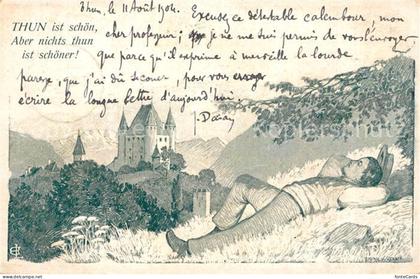 THUN ist schön,
Aber nichts thun
ist schöner!
Thun, le 11 Août 1904. Excusez ce détestable calembour, mon
cher professeur; je ne me suis permis de vous l'envoyer
que parce qu'il exprime à merveille la lourde
paresse, que j'ai dû secouer, pour vous
écrire la longue lettre d'aujourd'hui.